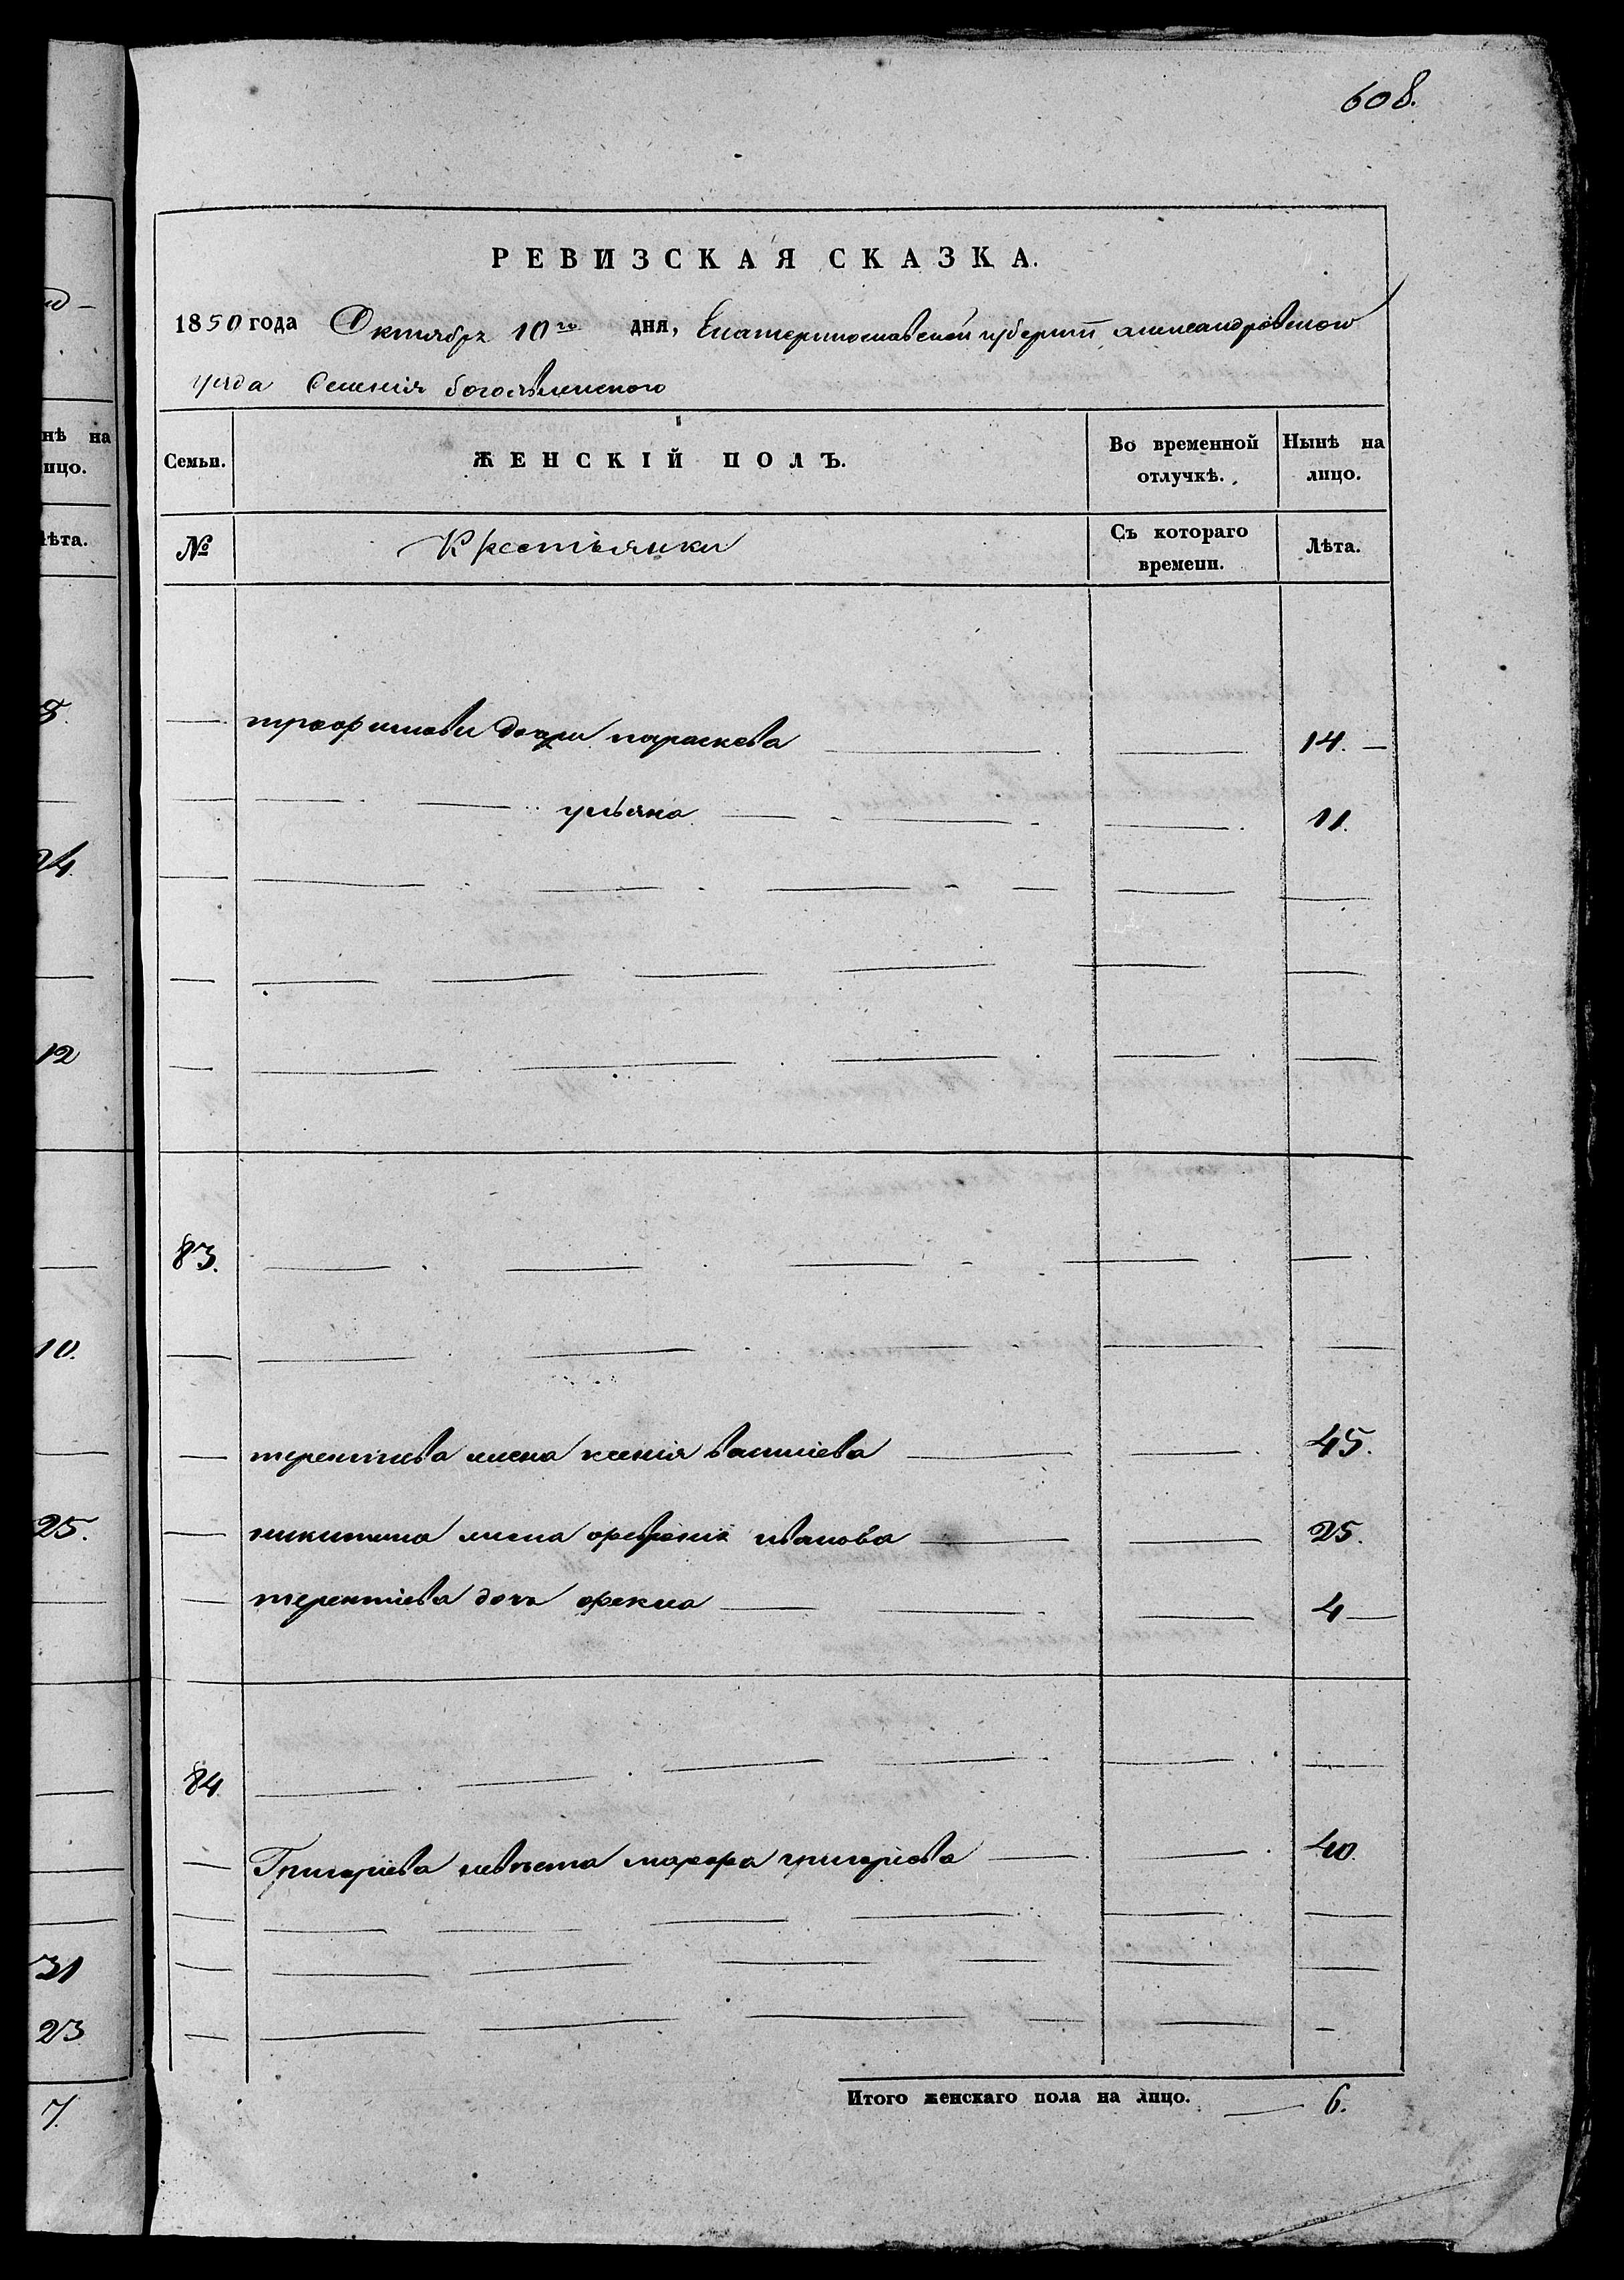 608.
РЕВИЗСКАЯ СКАЗКА.
1850 года Октября 10го дня, Екатеринославской губернии александровского
уезда Селения богоявленского
Семьи. ЖЕНСКІЙ ПОЛЪ. Во временной отлучкѣ. Нынѣ на лицо.
№ Крестьянки Съ котораго времени. Лѣта.
трофимови дочери параскева 14.
ульяна 11.
83.
терентиева жена ксенія василіева 45.
никитина жена ефросинія иванова 25.
терентіева дочь фекла 4
84
Григоріева невѣста марфа григоріева 40.
Итого женскаго пола на лицо. 6.
нѣ на
ицо.
ѣта.
8.
24.
12
10.
25.
31
23
7.